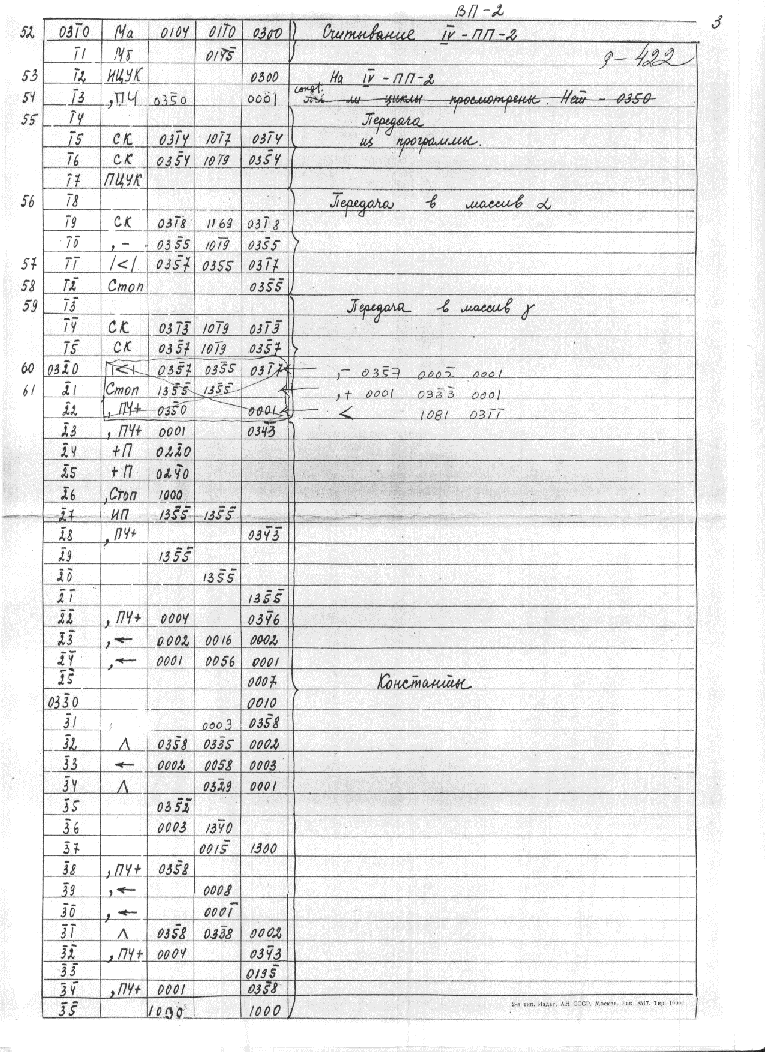 ВП-2
3
52 031̄0 Ма 0104 011̄0 0300 Считывание IV-ПП-2
1̄1 Мб 0145̄
9-422
53 1̄2 ИЦУК 0300 На IV-ПП-2
54 1̄3 ,ПЧ 035̄0 0001 ли циклы просмотрены. Нет - 0350
55 1̄4 Передача
1̄5 СК 031̄4 101̄7 031̄4 из программы.
1̄6 СК 035̄4 101̄9 035̄4
1̄7 ПЦУК
56 1̄8 Передача в массив α
1̄9 СК 031̄8 1169 031̄8
1̄0̄ ,- 035̄5 101̄9 035̄5
57 1̄1̄ |<| 035̄7 0355 031̄7
58 1̄2̄ Стоп 035̄5̄
59 1̄3̄ Передача в массив γ
1̄4̄ СК 031̄3̄ 101̄9 031̄3̄
1̄5̄ СК 035̄7 101̄9 035̄7
60 032̄0 |<| 035̄7 035̄5 031̄7 ,- 035̄7 0005̄ 0001
61 2̄1 Стоп 135̄5̄ 135̄5̄ ,+ 0001 033̄3̄ 0001
2̄2 ,ПЧ+ 035̄0 0001 < 1081 031̄1̄
2̄3 ,ПЧ+ 0001 034̄3
2̄4 +П 022̄0
2̄5 +П 024̄0
2̄6 ,Стоп 1000
2̄7 ИП 135̄5̄ 135̄5̄
2̄8 ,ПЧ+ 034̄3̄
2̄9 135̄5̄
2̄0̄ 135̄5̄
2̄1̄ 135̄5̄
2̄2̄ ,ПЧ+ 0004 034̄6
2̄3̄ ,← 0002 0016 0002
2̄4̄ ,← 0001 0056 0001
2̄5̄ 0007 Константы
033̄0 0010
3̄1 0003 035̄8
3̄2 Λ 035̄8 033̄5 0002
3̄3 ← 0002 0058 0003
3̄4 Λ 032̄9 0001
3̄5 035̄2̄
3̄6 0003 134̄0
3̄7 0015̄ 1300
3̄8 ,ПЧ+ 035̄8
3̄9 ,← 0008
3̄0̄ ,← 0001̄
3̄1̄ Λ 035̄8 033̄8 0002
3̄2̄ ,ПЧ+ 0004 034̄3
3̄3̄ 0195̄
3̄4̄ ,ПЧ+ 0001 035̄8
3̄5̄ 1000 1000